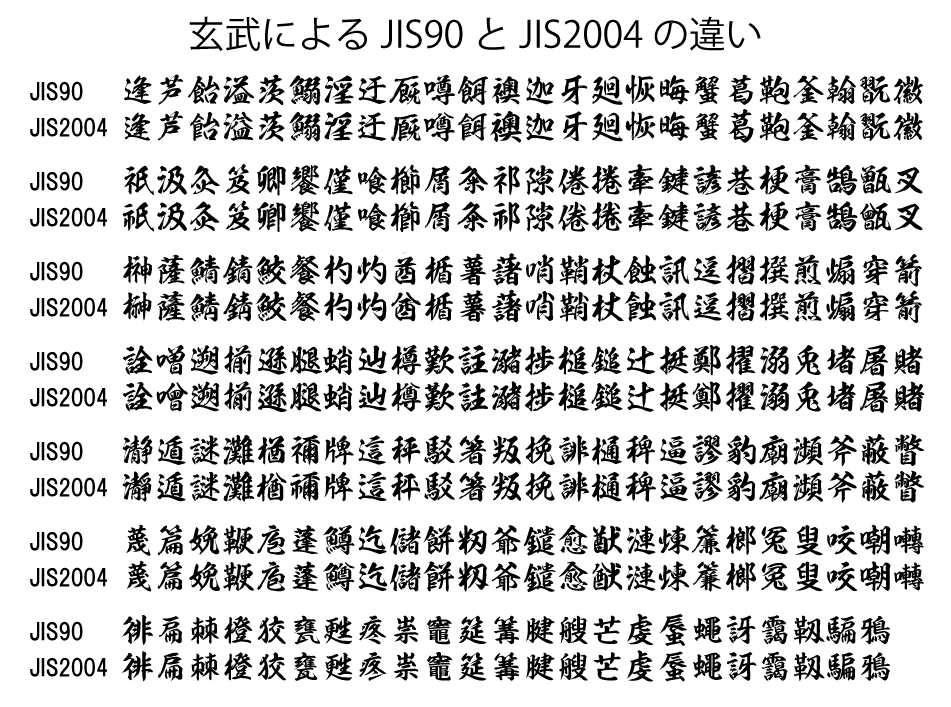 玄武による JIS90 と JIS2004 の違い
JIS90 逢芦飴溢茨鰯淫迂厩噂餌襖迦牙廻恢晦蟹葛鞄釜翰翫徽
JIS2004 逢芦飴溢茨鰯淫迂厩噂餌襖迦牙廻恢晦蟹葛鞄釜翰翫徽
JIS90 祇汲灸笈卿饗僅喰櫛屑粂祁隙倦捲牽鍵諺巷梗膏鵠甑叉
JIS2004 祇汲灸笈卿饗僅喰櫛屑粂祁隙倦捲牽鍵諺巷梗膏鵠甑叉
JIS90 榊薩鯖錆鮫餐杓灼酋楯薯藷哨鞘杖蝕訊逗摺撰煎煽穿箭
JIS2004 榊薩鯖錆鮫餐杓灼酋楯薯藷哨鞘杖蝕訊逗摺撰煎煽穿箭
JIS90 詮噌遡揃遜腿蛸辿樽歎註瀦捗槌鎚辻挺鄭擢溺兎堵屠賭
JIS2004 詮噌遡揃遜腿蛸辿樽歎註瀦捗槌鎚辻挺鄭擢溺兎堵屠賭
JIS90 瀞遁謎灘楢禰牌這秤駁箸叛挽誹樋稗逼謬豹廟瀕斧蔽瞥
JIS2004 瀞遁謎灘楢禰牌這秤駁箸叛挽誹樋稗逼謬豹廟瀕斧蔽瞥
JIS90 蔑篇娩鞭庖蓬鱒迄儲餅籾爺鑓愈猷漣煉簾榔冤叟咬嘲囀
JIS2004 蔑篇娩鞭庖蓬鱒迄儲餅籾爺鑓愈猷漣煉簾榔冤叟咬嘲囀
JIS90 徘扁棘橙狡甕甦疼祟竈筵篝腱艘芒虔蜃蠅訝靄靱騙鴉
JIS2004 徘扁棘橙狡甕甦疼祟竈筵篝腱艘芒虔蜃蠅訝靄靱騙鴉